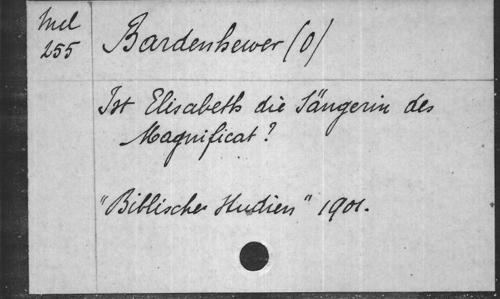 Mel
255
Bardenhewer (O)
Ist Elisabeth die Sängerin des
Magnificat?
"Biblische Studien" 1901.